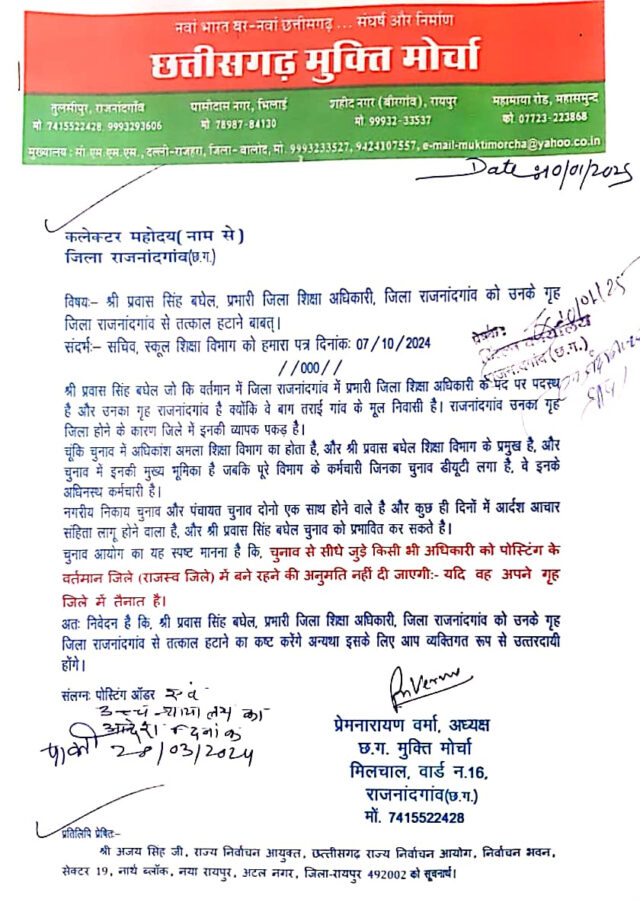 नवां भारत बर-नवां छत्तीसगढ़ ... संघर्ष और निर्माण
छत्तीसगढ़ मुक्ति मोर्चा
तुलसीपुर, राजनांदगाँव
मो. 7415522428, 9993293606
घासीदास नगर, भिलाई
मो. 78987-84130
शहीद नगर (बीरगांव), रायपुर
मो. 99932-33537
महामाया रोड, महासमुन्द
फो. 07723-223868
मुख्यालय : सी.एम.एम.एम., दल्ली-राजहरा, जिला-बालोद, मो. 9993233527, 9424107557, e-mail-muktimorcha@yahoo.co.in
Date 10/01/2025
कलेक्टर महोदय( नाम से )
जिला राजनांदगांव(छ.ग.)
विषयः- श्री प्रवास सिंह बघेल, प्रभारी जिला शिक्षा अधिकारी, जिला राजनांदगांव को उनके गृह
जिला राजनांदगांव से तत्काल हटाने बाबत्।
संदर्भः- सचिव, स्कूल शिक्षा विभाग को हमारा पत्र दिनांकः 07/10/2024
//000//
श्री प्रवास सिंह बघेल जो कि वर्तमान में जिला राजनांदगांव में प्रभारी जिला शिक्षा अधिकारी के पद पर पदस्थ
है और उनका गृह राजनांदगांव है क्योंकि वे बाग तराई गांव के मूल निवासी है। राजनांदगांव उनका गृह
जिला होने के कारण जिले में इनकी व्यापक पकड़ है।
चूंकि चुनाव में अधिकांश अमला शिक्षा विभाग का होता है, और श्री प्रवास बघेल शिक्षा विभाग के प्रमुख है, और
चुनाव में इनकी मुख्य भूमिका है जबकि पूरे विभाग के कर्मचारी जिनका चुनाव डीयूटी लगा है, वे इनके
अधिनस्थ कर्मचारी है।
नगरीय निकाय चुनाव और पंचायत चुनाव दोनो एक साथ होने वाले है और कुछ ही दिनों में आर्दश आचार
संहिता लागू होने वाला है, और श्री प्रवास सिंह बघेल चुनाव को प्रभावित कर सकते है।
चुनाव आयोग का यह स्पष्ट मानना है कि, चुनाव से सीधे जुड़े किसी भी अधिकारी को पोस्टिंग के
वर्तमान जिले (राजस्व जिले) में बने रहने की अनुमति नहीं दी जाएगी:- यदि वह अपने गृह
जिले में तैनात है।
अतः निवेदन है कि, श्री प्रवास सिंह बघेल, प्रभारी जिला शिक्षा अधिकारी, जिला राजनांदगांव को उनके गृह
जिला राजनांदगांव से तत्काल हटाने का कष्ट करेंगे अन्यथा इसके लिए आप व्यक्तिगत रूप से उत्तरदायी
होंगे।
संलग्नः पोस्टिंग ऑडर एवं
उच्च न्यायालय का
आदेश दिनांक
28/03/2024
PnVerma
प्रेमनारायण वर्मा, अध्यक्ष
छ.ग. मुक्ति मोर्चा
मिलचाल, वार्ड न.16,
राजनांदगांव(छ.ग.)
मों. 7415522428
प्रतिलिपि प्रेषितः-
श्री अजय सिंह जी, राज्य निर्वाचन आयुक्त, छत्तीसगढ़ राज्य निर्वाचन आयोग, निर्वाचन भवन,
सेक्टर 19, नार्थ ब्लॉक, नया रायपुर, अटल नगर, जिला-रायपुर 492002 को सूचनार्थ।